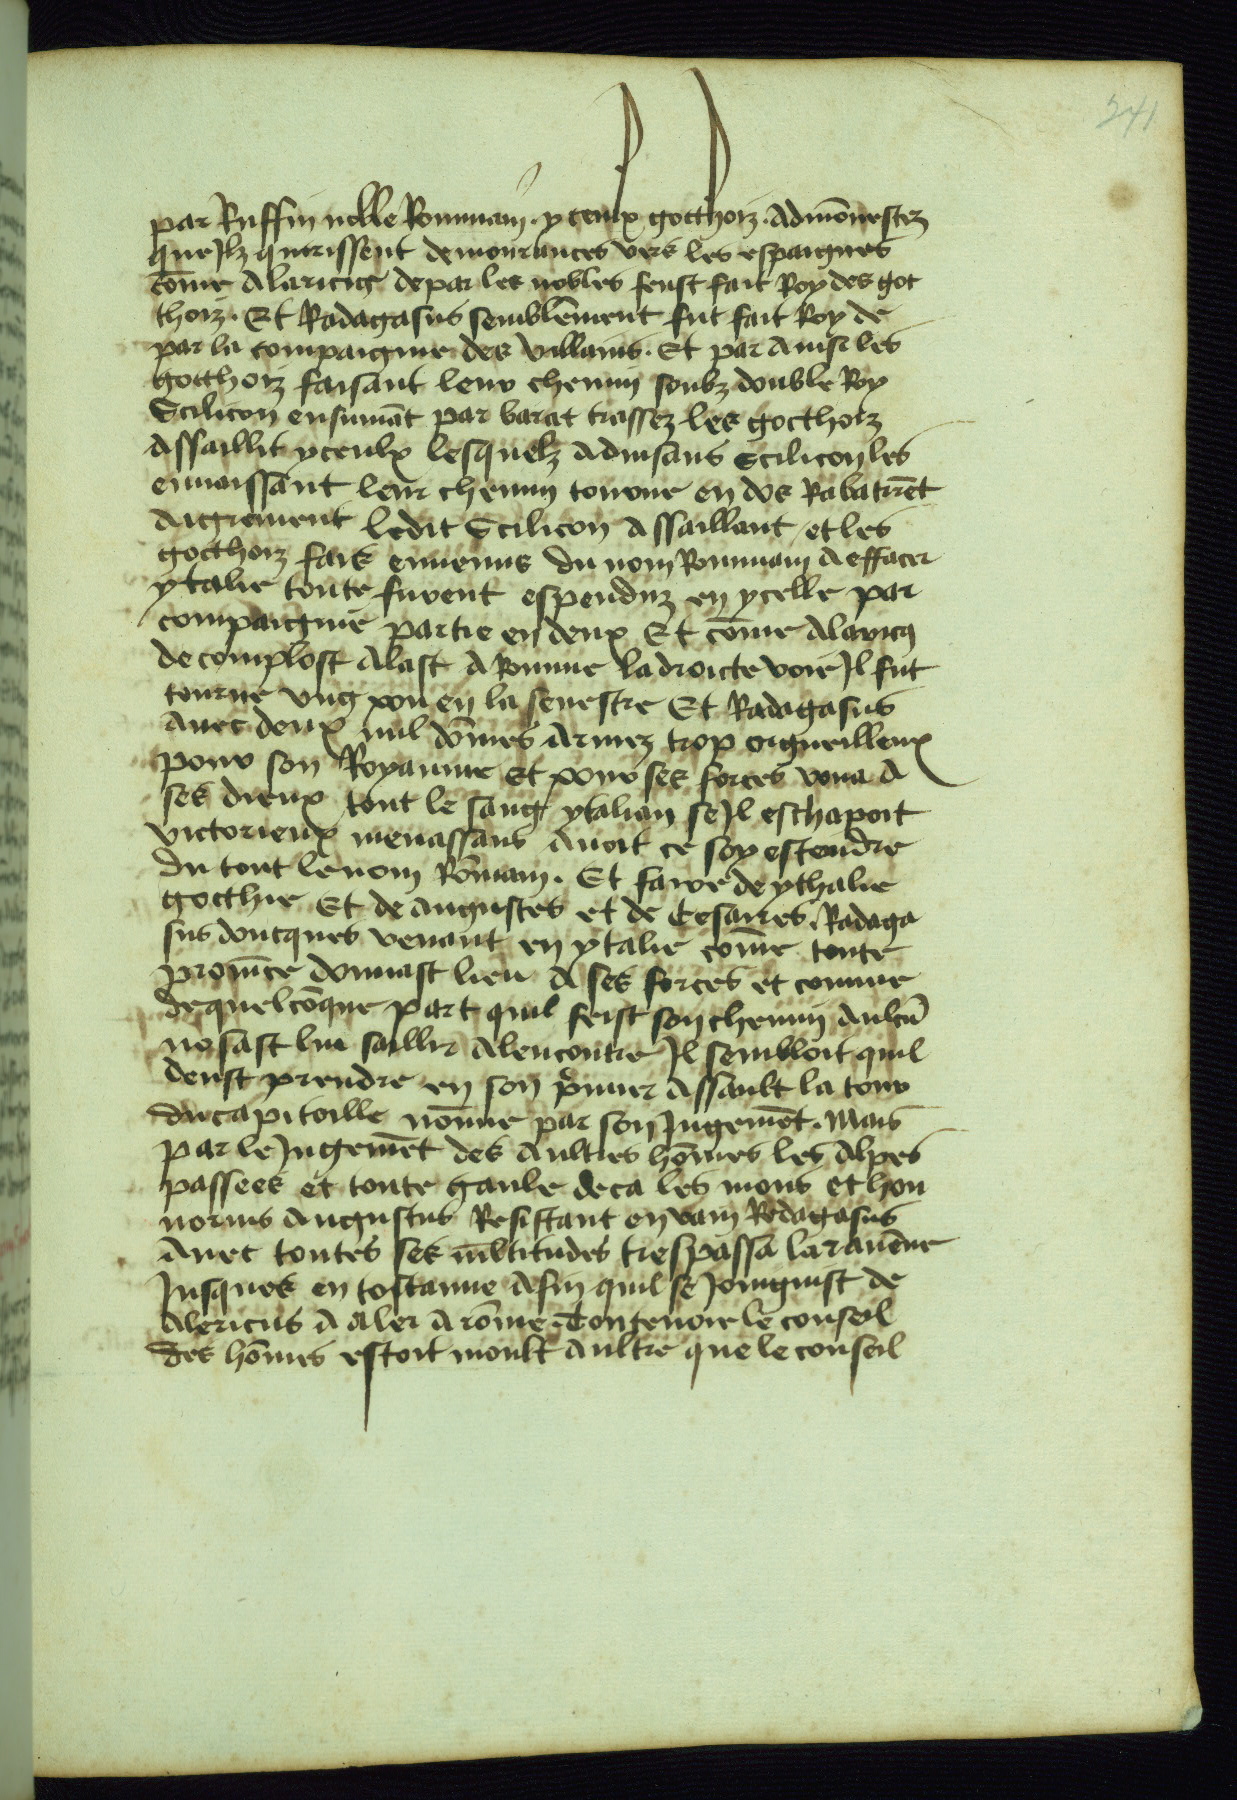 241
par Ruffin noble Rommain. yceulx gotthoiz. Admõnestez
que Ilz querissent demourances vers les espaignes
cõme Alaricus de par les nobles feust fait Roy des got
thoiz. Et Radagasus semblẽment fut fait Roy de
par la compaignie des villains. Et par ainsi les
gotthoiz faisant leur chemin soubz double Roy
Scilicon ensuiuãt par barat trassez les gotthoiz
Assaillit yceulx lesquelz aduisans Scilicon les
enuaissant leur chemin tourne en dos Rabatirẽt
Aigrement ledit Scilicon Assaillant et les
gotthoiz fais ennemis du nom Rommain A effacer
ytalie toute furent espenduz en ycelle par
compaignie partie en deux Et cõme Alaricus
de complost Alast A Romme la droicte voie Il fut
tourne vng pou en la senestre Et Radagasus
Auec deux mil dõmes Armez trop orgueilleux
pour son Royaume Et pour ses forces voua A
ses dieux tout le sang ytalian se Il eschapoit
victorieux menassans Auoit ce soy estendre
du tout le nom Rõmain. Et faire de ythalie
gotthie Et de augustes et de Cesaires. Radaga
sus doncques venant en ytalie cõme toute
prouĩce donnast lieu A ses forces et comme
de quelcõque part quil feist son chemin Aulcũ
nosast lui saillir A lencontre Il sembloit quil
deust prendre en son p̃mier Assault la tour
du capitoille nõmee par son Jugemẽt. Mais
par le Jugemẽt des Aultres hõmes les Alpes
passees et toute gaule deca les mons et hon
norius Augustus Resistant en vain Redagasus
Auec toutes ses mĩltitudes trespassa la rauẽne
Jusques en tostanne Afin quil se Joingnist de
Alericus A aler A rõme. le conseil
des hõmes estoit moult Aultre que le conseil